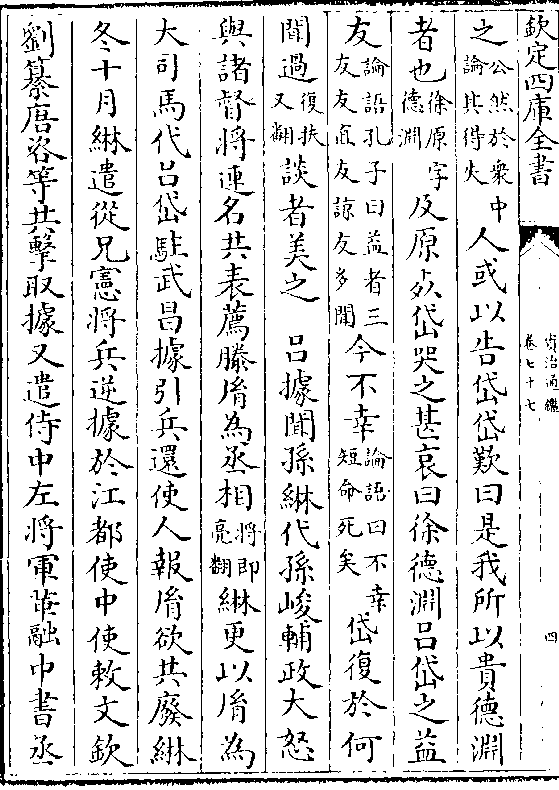 欽定四庫全書
資治通鑑
卷七十七
四
之公然於衆中論其得失人或以告岱岱歎曰是我所以貴德淵
者也徐原字德淵及原死岱哭之甚哀曰徐德淵吕岱之益
友論語孔子曰益者三友友直友諒友多聞今不幸論語曰不幸短命死矣岱復於何
聞過復扶又翻談者美之　吕據聞孫綝代孫峻輔政大怒
與諸督將連名共表薦滕㣧為丞相將即亮翻綝更以㣧為
大司馬代吕岱駐武昌據引兵還使人報㣧欲共廢綝
冬十月綝遣從兄憲將兵逆據於江都使中使敕文欽
劉纂唐咨等共擊取據又遣侍中左將軍華融中書丞